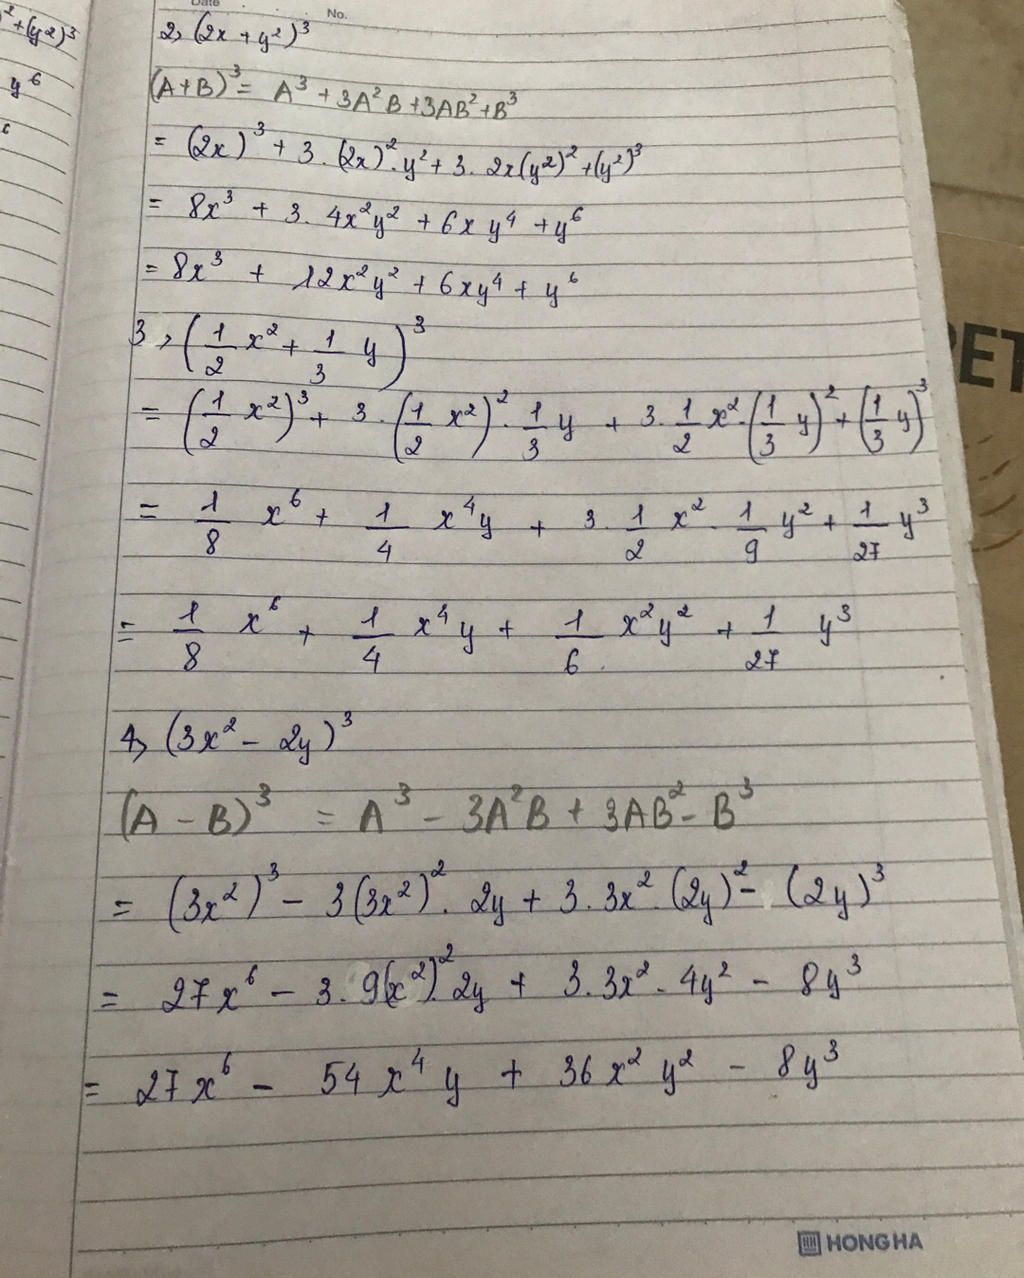 ² + (y²)³
y⁶
Date
No.
2, (2x + y²)³
(A+B)³ = A³ + 3A²B + 3AB² + B³
= (2x)³ + 3.(2x)².y² + 3. 2x(y²)² + (y²)³
= 8x³ + 3. 4x²y² + 6xy⁴ + y⁶
= 8x³ + 12x²y² + 6xy⁴ + y⁶
3, (1/2 x² + 1/3 y)³
= (1/2 x²)³ + 3.(1/2 x²)². 1/3 y + 3. 1/2 x².(1/3 y)² + (1/3 y)³
= 1/8 x⁶ + 1/4 x⁴y + 3. 1/2 x². 1/9 y² + 1/27 y³
= 1/8 x⁶ + 1/4 x⁴y + 1/6 x²y² + 1/27 y³
4, (3x² - 2y)³
(A - B)³ = A³ - 3A²B + 3AB² - B³
= (3x²)³ - 3(3x²)². 2y + 3. 3x².(2y)² - (2y)³
= 27x⁶ - 3. 9(x²)².2y + 3. 3x². 4y² - 8y³
= 27x⁶ - 54x⁴y + 36x²y² - 8y³
HONG HA